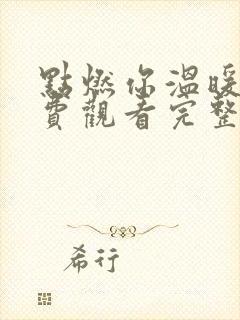 點燃你溫暖
費觀看完整
希行